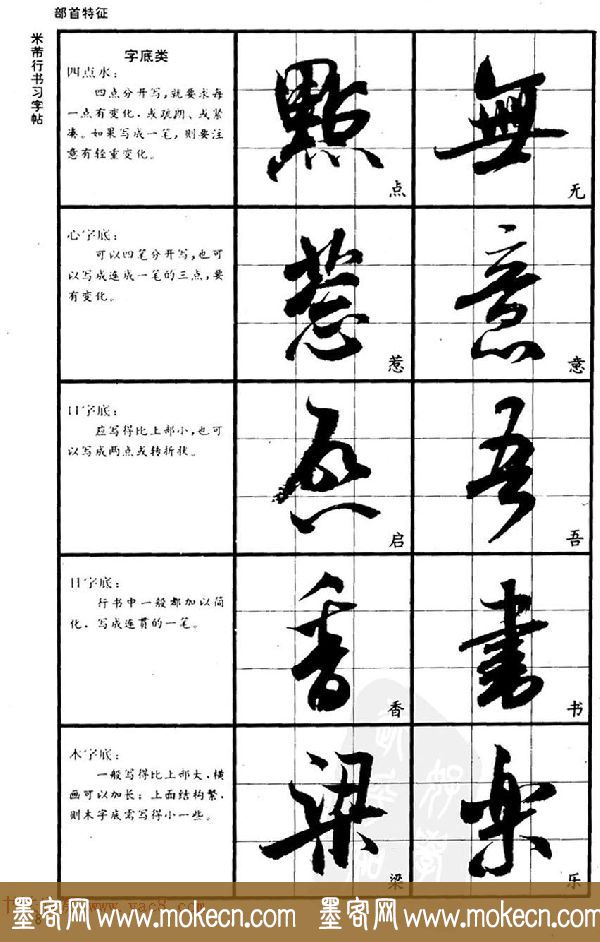 部首特征
米芾行书习字帖
字底类
四点水：
四点分开写，就要求每
一点有变化，或疏朗、或紧
凑。如果写成一笔，则要注
意有轻重变化。
點
点
無
无
心字底：
可以四笔分开写，也可
以写成连成一笔的三点，要
有变化。
惹
惹
意
意
口字底：
应写得比上部小，也可
以写成两点或转折状。
启
吾
吾
日字底：
行书中一般都加以简
化，写成连贯的一笔。
香
香
書
书
木字底：
一般写得比上部大，横
画可以加长；上面结构繁，
则木字底需写得小一些。
梁
梁
乐
墨客网 www.mokecn.com 墨客网 www.mokecn.com